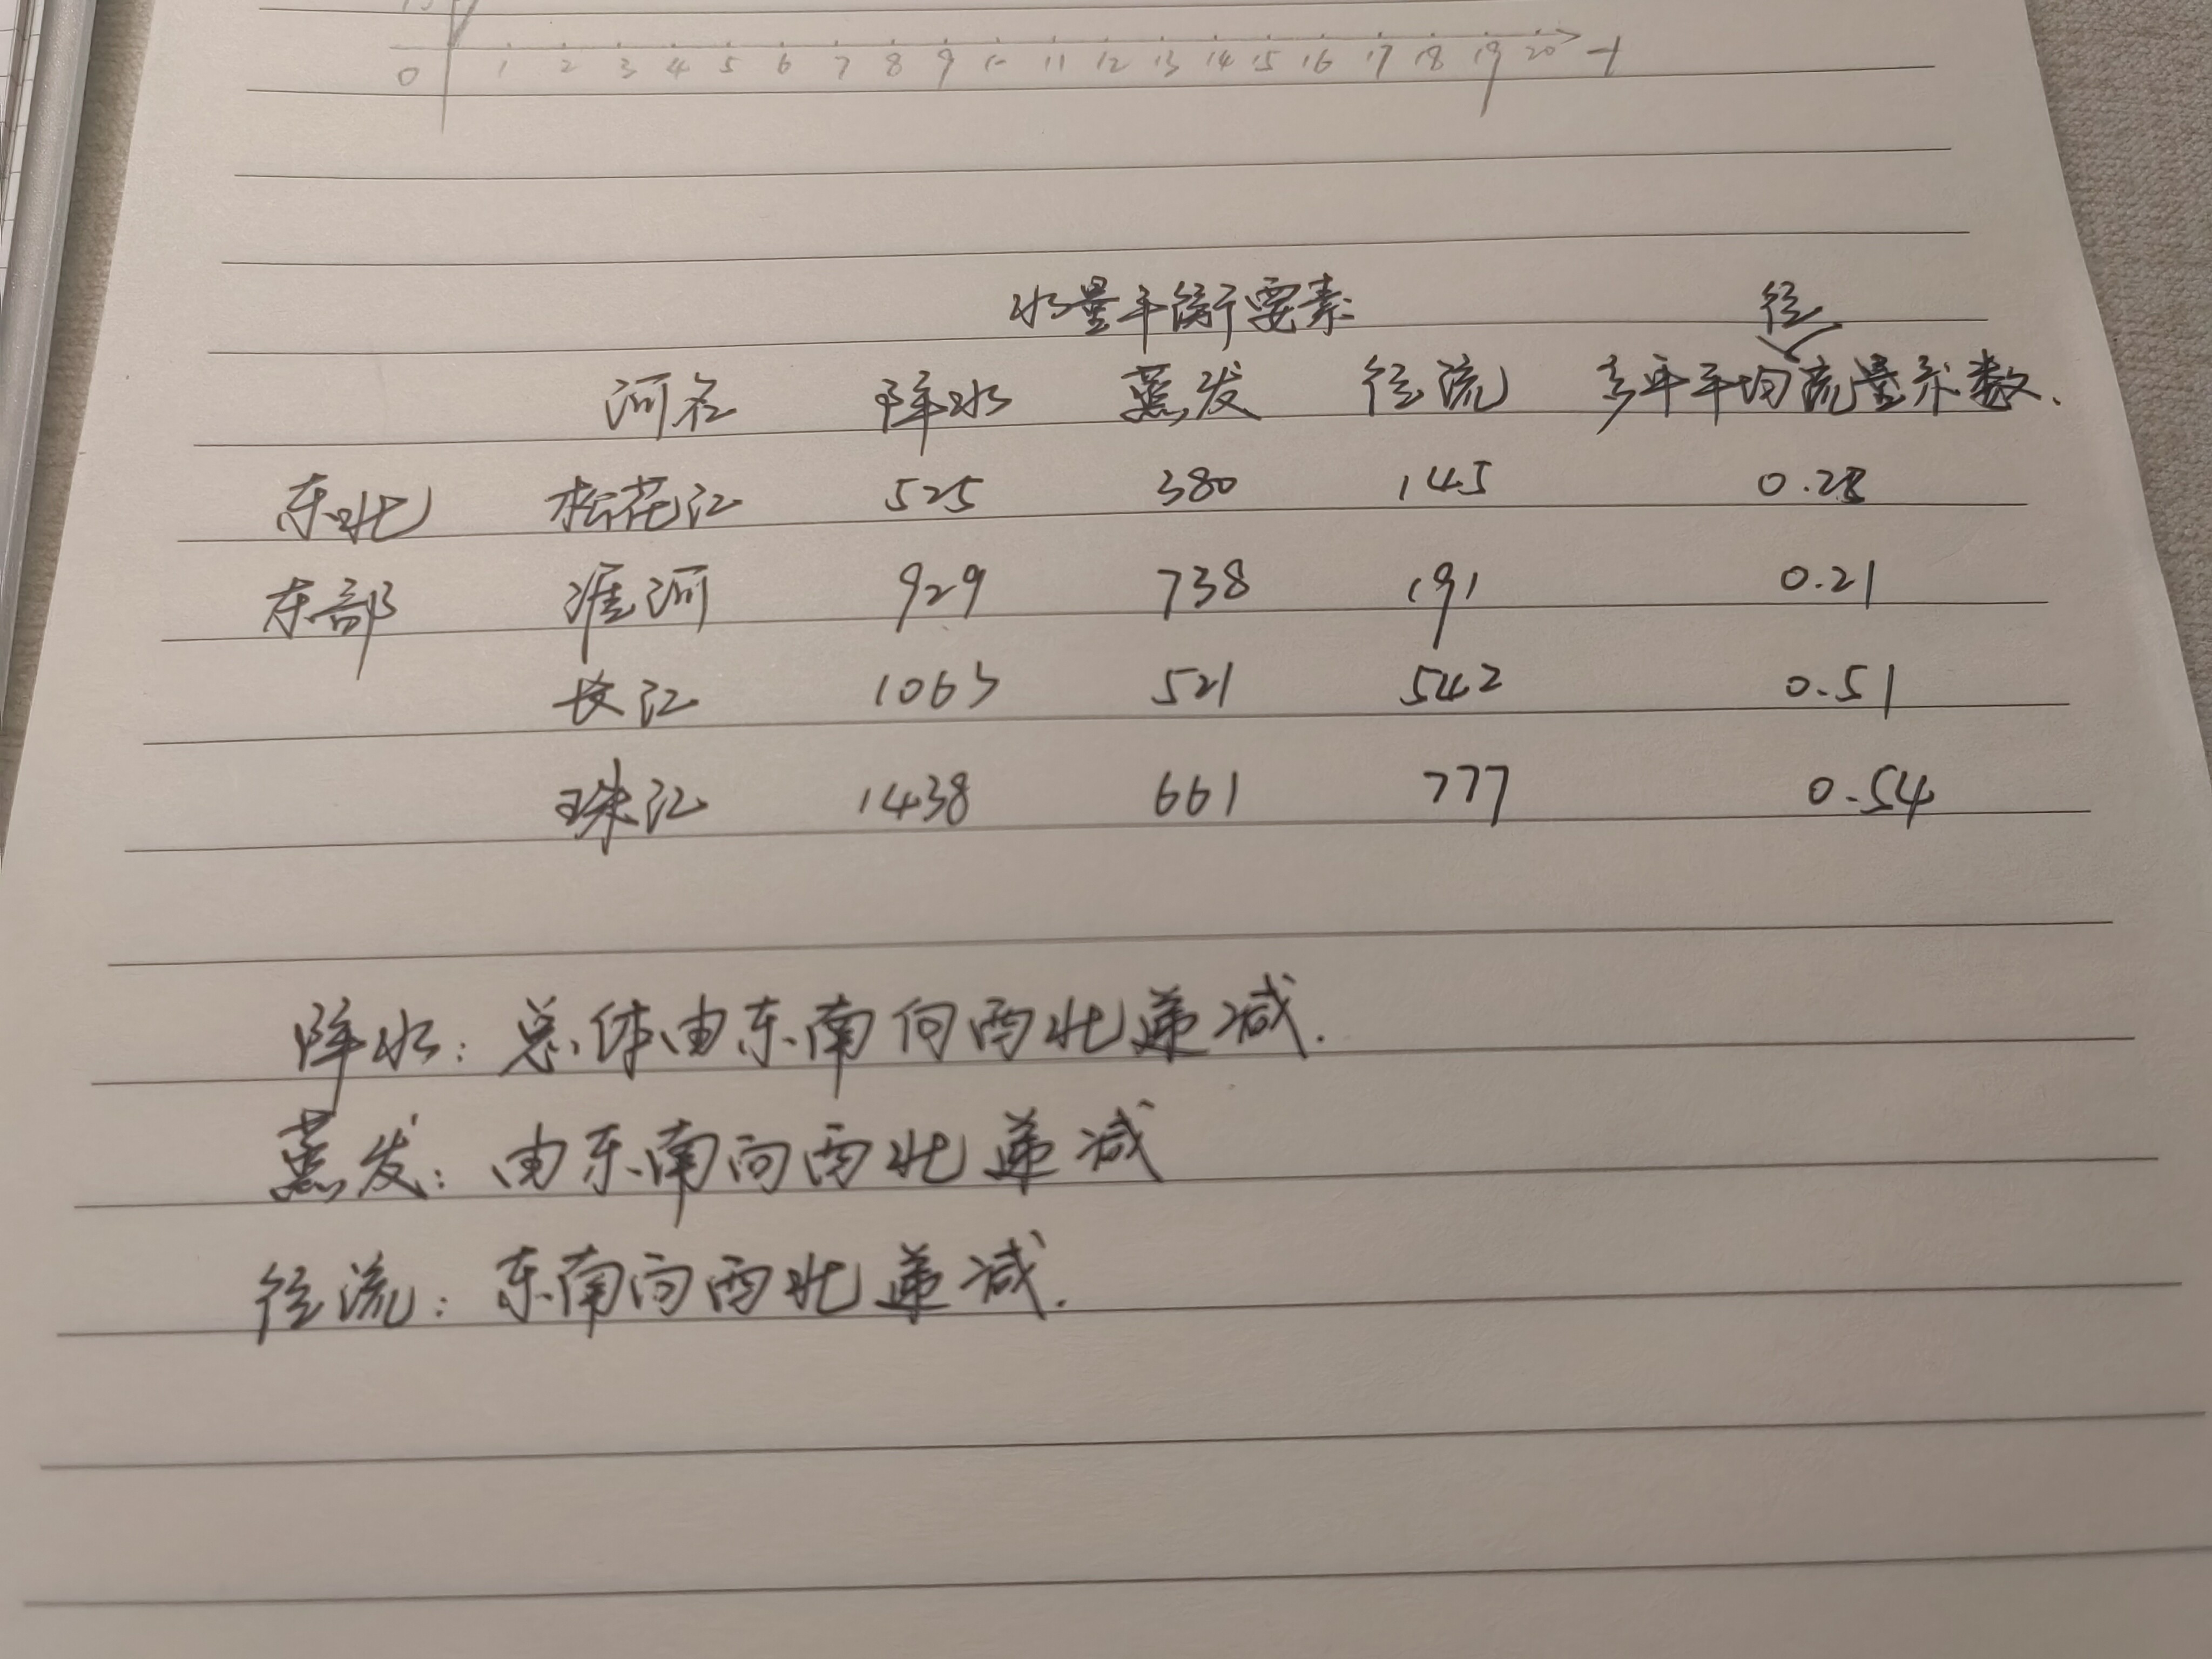 0 1 2 3 4 5 6 7 8 9 10 11 12 13 14 15 16 17 18 19 20 t
水量平衡要素
径
河名 降水 蒸发 径流 多年平均流量系数.
东北 松花江 525 380 145 0.28
东部 淮河 929 738 191 0.21
长江 1063 521 542 0.51
珠江 1438 661 777 0.54
降水: 总体由东南向西北递减.
蒸发: 由东南向西北递减
径流: 东南向西北递减.